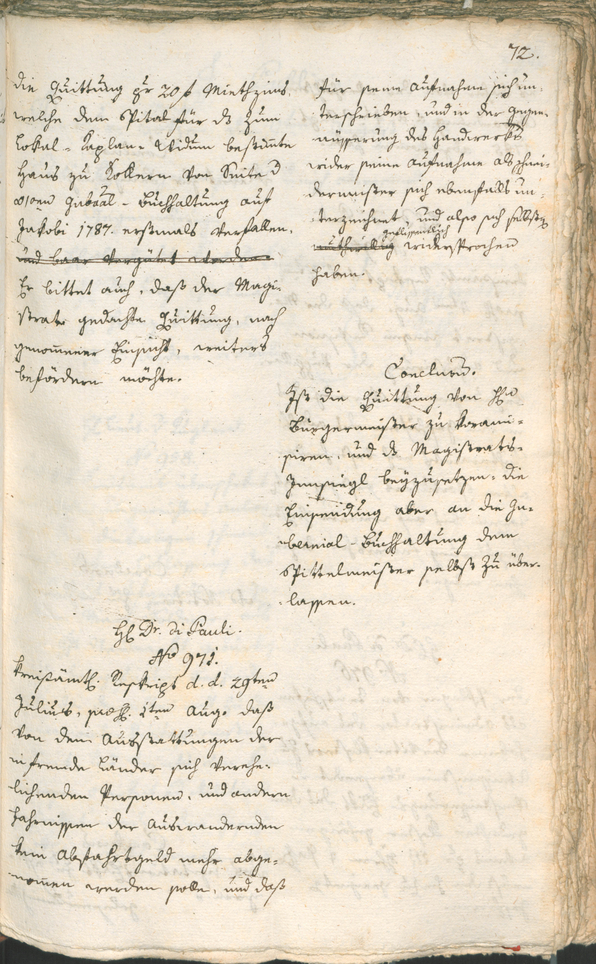 72.
die Quittung pr 20 f Miethzins,
welche dem Spital für ds zum
Lokal-Kaplan-Widum bestimte
Haus zu Kollern von Seite d
Gubāal-Buchhaltung auf
Jakobi 1787. erstmals verfallen,
und baar vergütet werden
Er bittet auch, daß der Magi-
strat gedachte Quittung, nach
genommener Einsicht, weiters
befördern möchte.
Hl Dr. di Pauli.
No 971.
Kreisämtl. Reskript d. d. 29ten
Julius, 1ten Aug. daß
von den Ausstattungen der
in fremde Länder sich verehe-
lichenden Personen, und andern
Fahrnissen der Auswandernden
kein Abfahrtgeld mehr abge-
nommen werden solle, und daß
für seine Aufnahm sich un-
terschrieben, und in der Gegen-
äusserung des Handwerks
wider seine Aufnahme als Schnei-
dermeister sich ebenfalls un-
terzeichnet, und also sich selbsten
geflissentlich
muthwillig widersprochen
haben.
Conclusū.
Ist die Quittung von Hrn
Bürgermeister zu korami-
siren, und ds Magistrats-
Innsiegl beyzusetzen: die
Einsendung aber an die Gu-
bernial-Buchhaltung dem
Spittelmeister selbst zu über-
lassen.